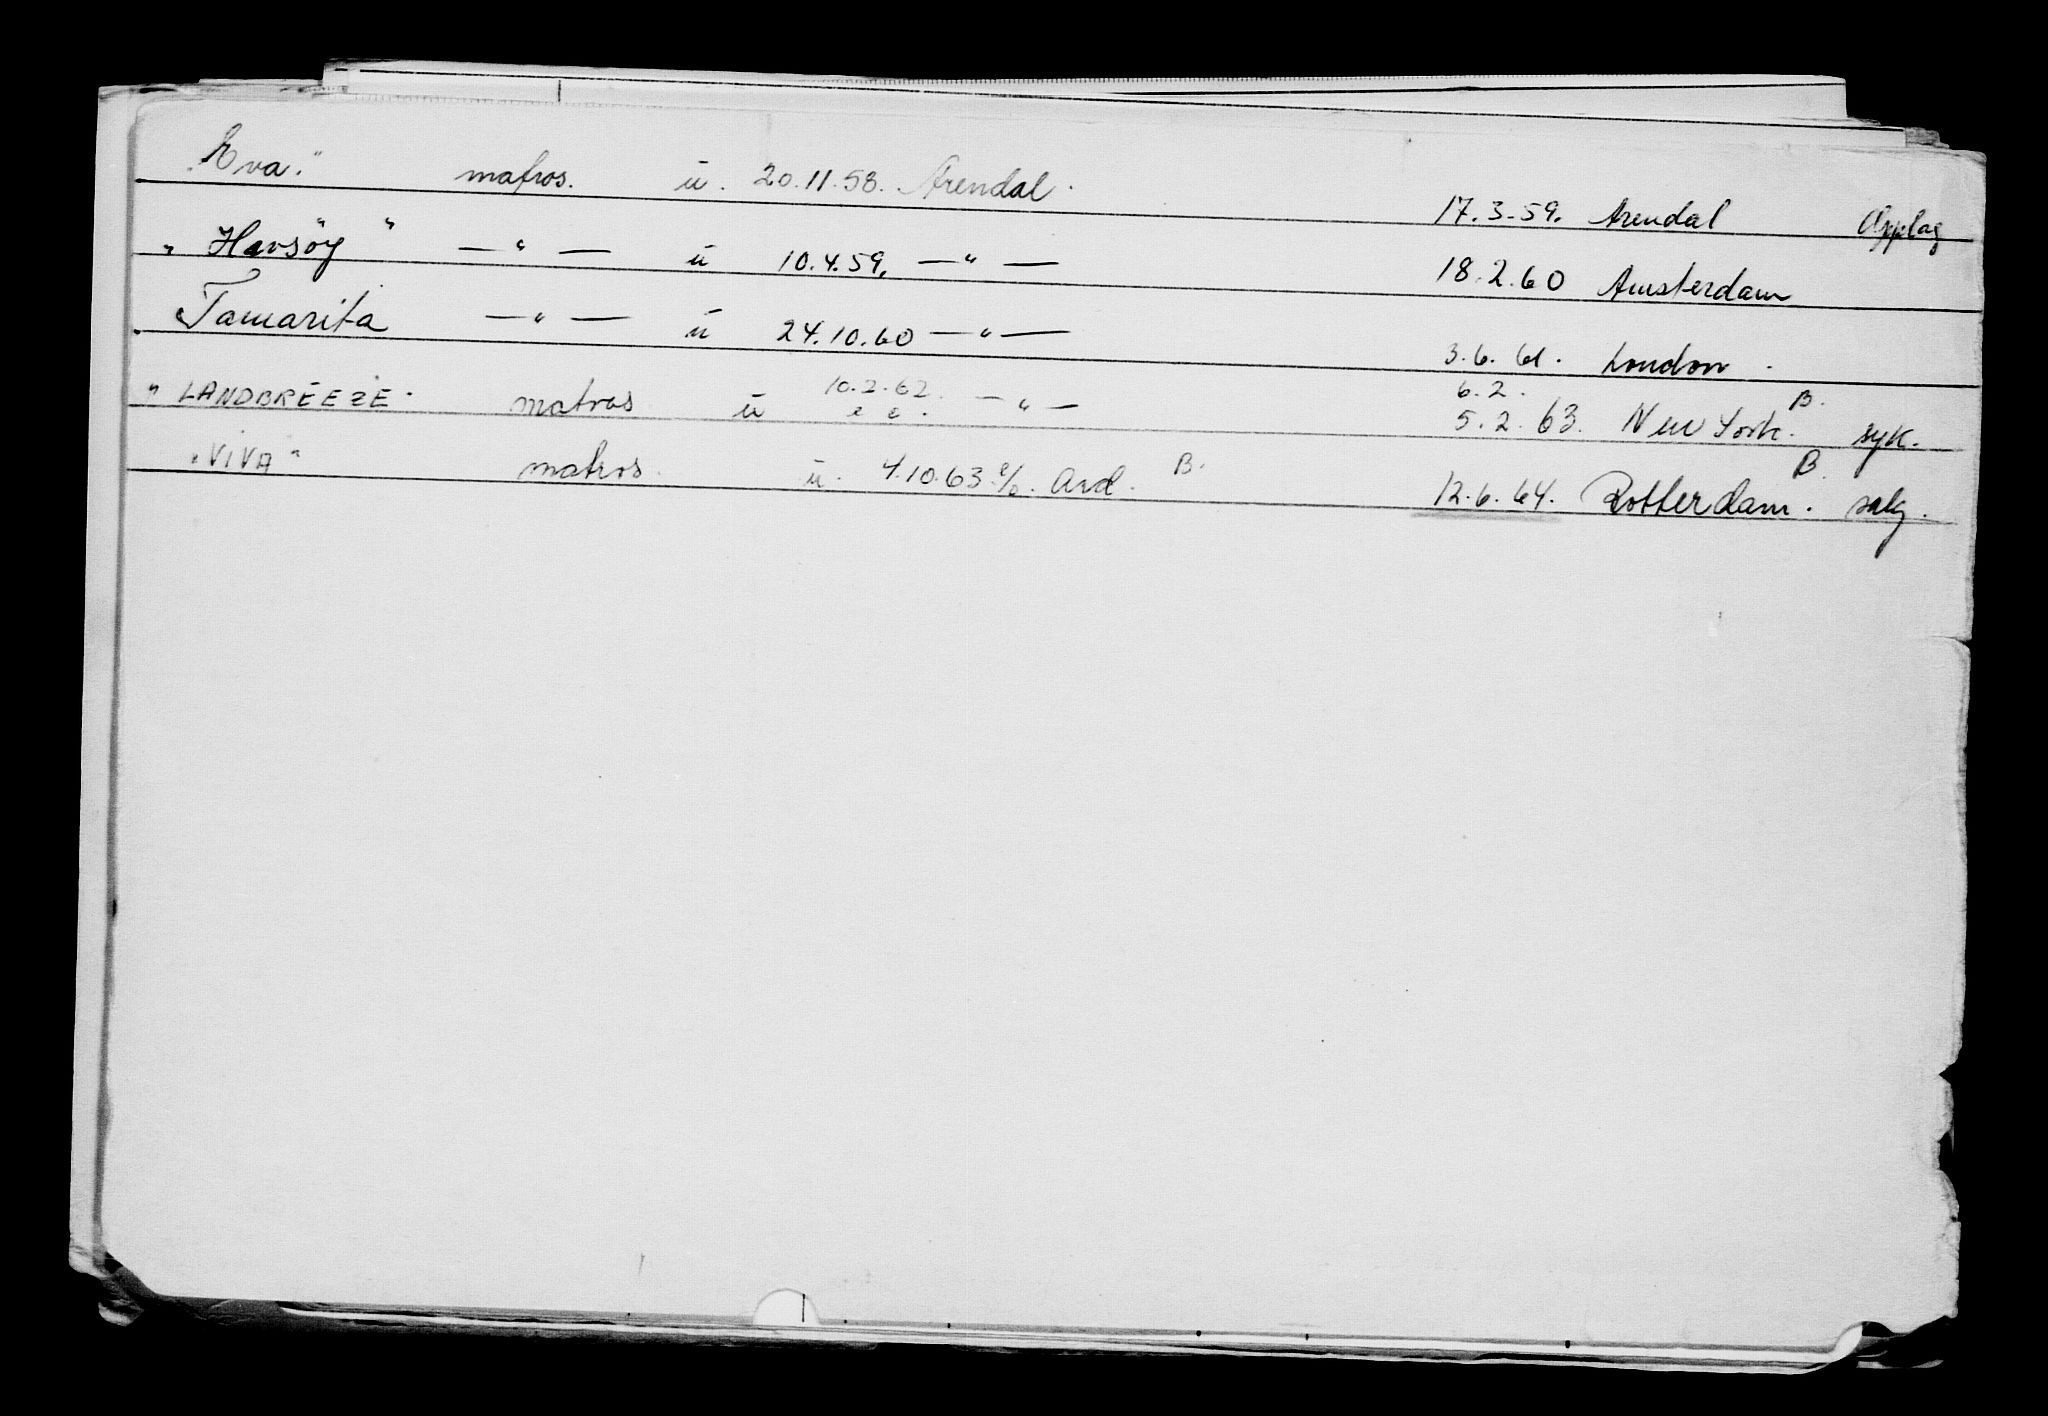 "Eva." matros. ū. 20.11.58. Arendal. 17.3.59. Arendal Opplag
"Havsöy" — " — ū 10.4.59. — " — 18.2.60 Amsterdam
"Tamarita — " — ū 24.10.60 — " — 3.6.61. London.
10.2.62. 6.2. B.
"LANDBREEZE. matros ū — " — 5.2.63. New York. syk.
"VIVA" matros. ū. 4.10.63 Ard. B. B.
12.6.64. Rotterdam. salg.